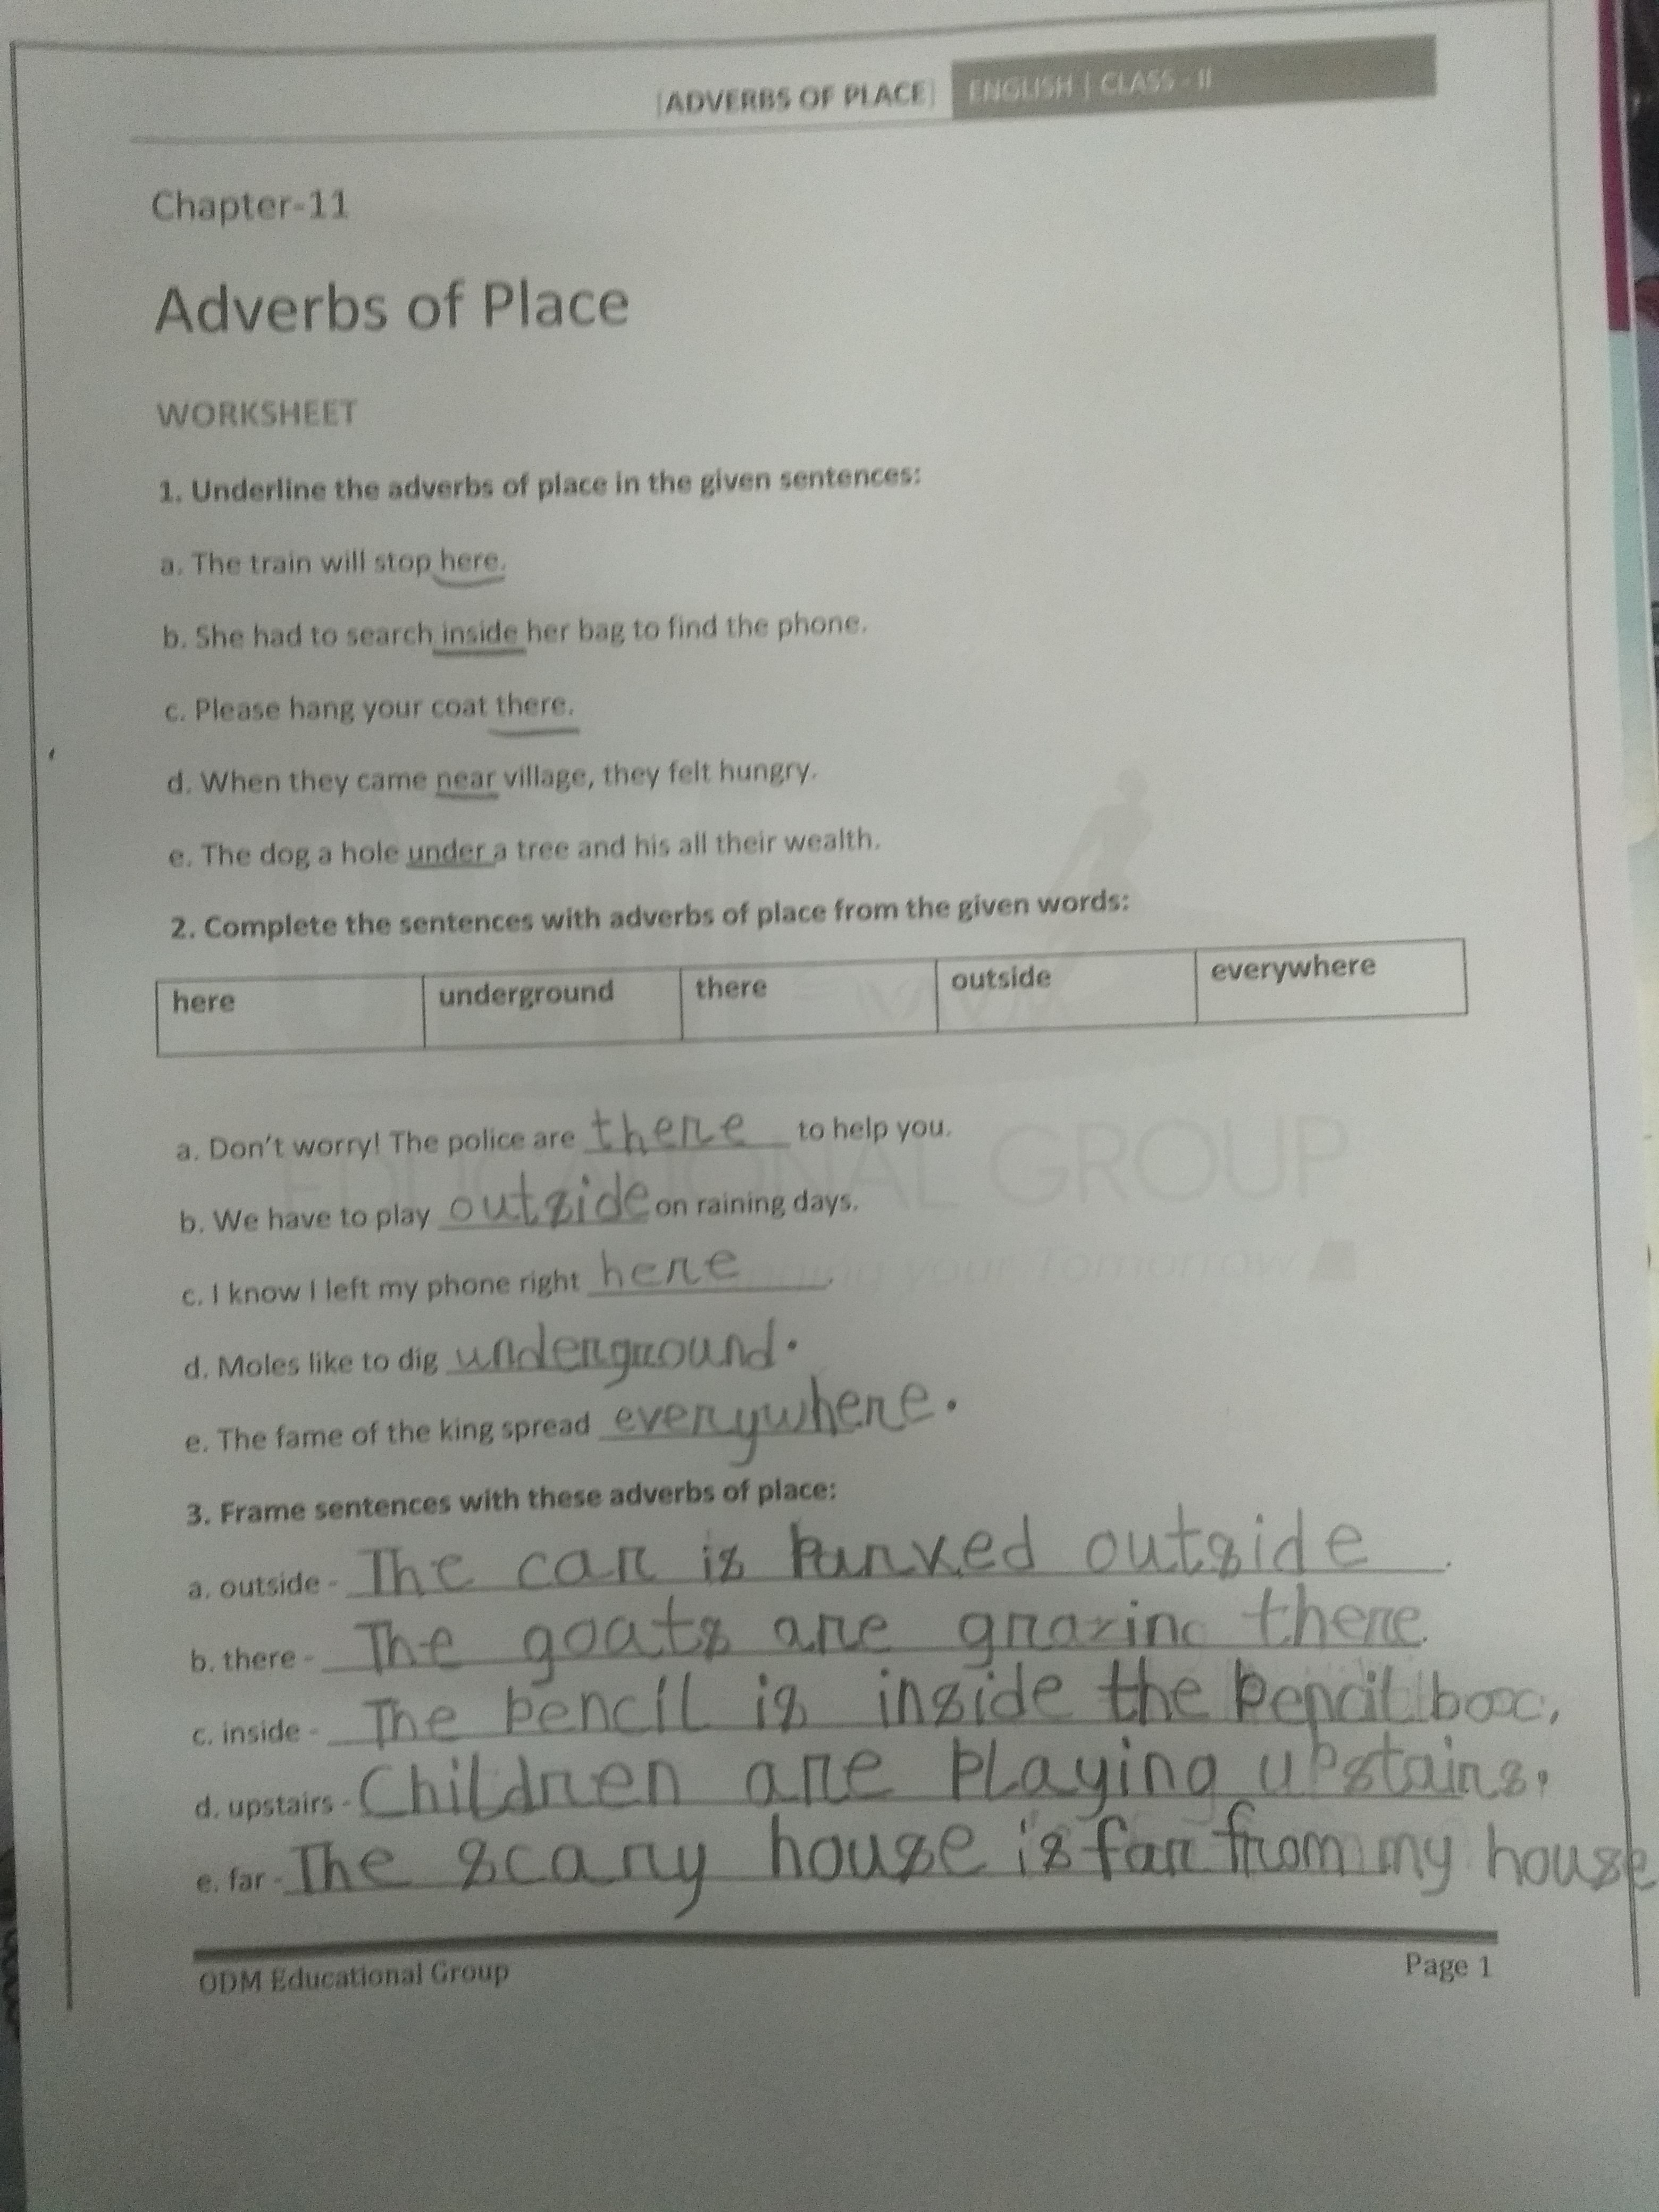 [ADVERBS OF PLACE] ENGLISH | CLASS - II
Chapter-11
Adverbs of Place
WORKSHEET
1. Underline the adverbs of place in the given sentences:
a. The train will stop here.
b. She had to search inside her bag to find the phone.
c. Please hang your coat there.
d. When they came near village, they felt hungry.
e. The dog a hole under a tree and his all their wealth.
2. Complete the sentences with adverbs of place from the given words:
here underground there outside everywhere
a. Don't worry! The police are there to help you.
b. We have to play outside on raining days.
c. I know I left my phone right here.
d. Moles like to dig underground.
e. The fame of the king spread everywhere.
3. Frame sentences with these adverbs of place:
a. outside - The car is parked outside.
b. there - The goats are grazing there.
c. inside - The pencil is inside the pencil box.
d. upstairs - Children are playing upstairs.
e. far - The scary house is far from my house
EDUCATIONAL GROUP
your tomorrow
ODM Educational Group Page 1